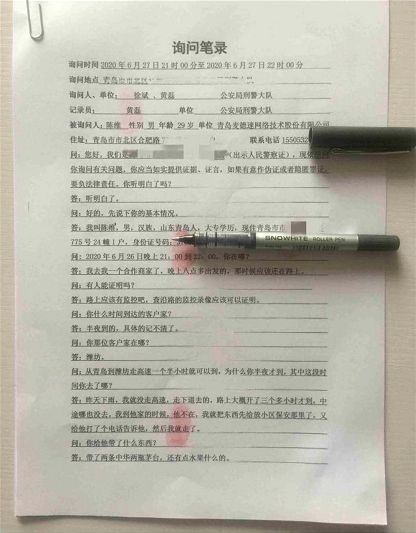 询问笔录
询问时间 2020 年 6 月 27 日 21 时 00 分至 2020 年 6 月 27 日 22 时 00 分
询问地点 青岛市市北区
询问人、单位: 徐斌 、黄磊 公安局刑警大队
记录员: 黄磊 单位 公安局刑警大队
被询问人: 陈维 性别 男 年龄 29 岁 单位 青岛麦德速网络技术股份有限公司
住址: 青岛市市北区合肥路 联系电话 1550532
问: 您好, 我们是 (出示人民警察证), 现依法向
你询问有关问题, 你应当如实提供证据、证言, 如果有意作伪证或者隐匿罪证,
要负法律责任, 你听明白了吗?
答: 听明白了。
问: 好的, 先说下你的基本情况。
答: 我叫陈维, 男, 汉族, 山东青岛人, 大专学历, 现住青岛市市
775 号 24 幢 1 户, 身份证号码:
问: 2020 年 6 月 26 日晚上 21: 00 到 22: 00, 你在哪?
答: 我去我一个合作商家了, 晚上八点多出发的, 那时候应该还在路上。
问: 有人能证明吗?
答: 路上应该有监控吧, 查沿路的监控录像应该可以证明。
问: 你什么时间到达的客户家?
答: 半夜到的, 具体的记不清了。
问: 你那位客户家在哪?
答: 潍坊。
问: 从青岛到潍坊走高速一个半小时就可以到, 为什么你半夜才到, 其中这段时
间你去了哪?
答: 昨天下雨, 我就没走高速, 走下道去的, 路上大概开了三个多小时才到, 中
途哪也没去, 我到他家的时候, 他不在, 我就把东西先给放小区保安那里了, 又
给他打了个电话告诉他, 然后我就走了。
问: 你给他带了什么东西?
答: 带了两条中华两瓶茅台, 还有点水果什么的。
SNOWHITE ROLLER PEN